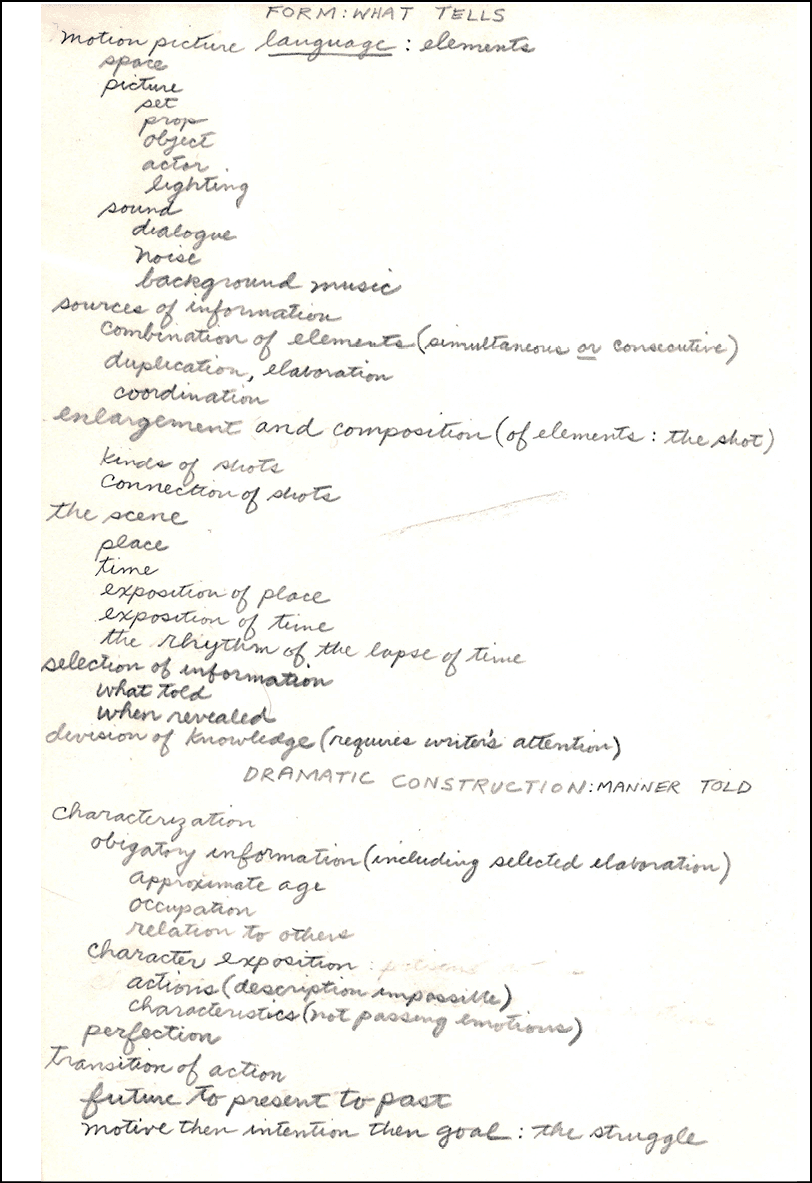 FORM: WHAT TELLS
motion picture language : elements
space
picture
set
prop
object
actor
lighting
sound
dialogue
noise
background music
sources of information
combination of elements (simultaneous or consecutive)
duplication, elaboration
coordination
enlargement and composition (of elements : the shot)
kinds of shots
connection of shots
the scene
place
time
exposition of place
exposition of time
the rhythm of the lapse of time
selection of information
what told
when revealed
division of knowledge (requires writer's attention)
DRAMATIC CONSTRUCTION: MANNER TOLD
characterization
obigatory information (including selected elaboration)
approximate age
occupation
relation to others
character exposition
actions (description impossible)
characteristics (not passing emotions)
perfection
transition of action
future to present to past
motive then intention then goal : the struggle